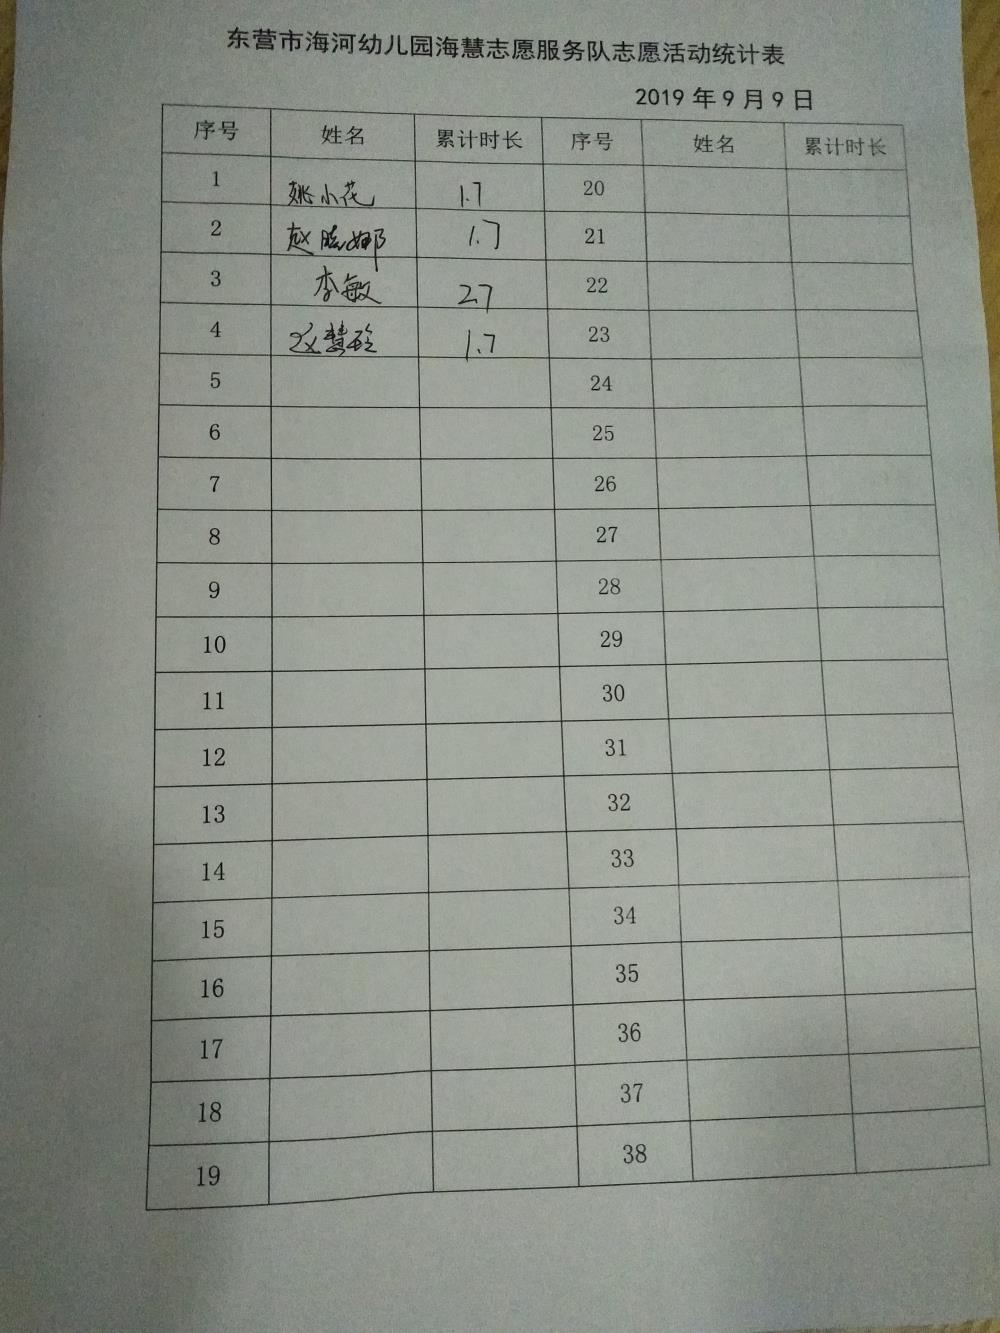 东营市海河幼儿园海慧志愿服务队志愿活动统计表
2019 年 9 月 9 日
序号 姓名 累计时长 序号 姓名 累计时长
1 姚小花 1.7 20
2 赵晓娜 1.7 21
3 李敏 27 22
4 赵慧玲 1.7 23
5 24
6 25
7 26
8 27
9 28
10 29
11 30
12 31
13 32
14 33
15 34
16 35
17 36
18 37
19 38